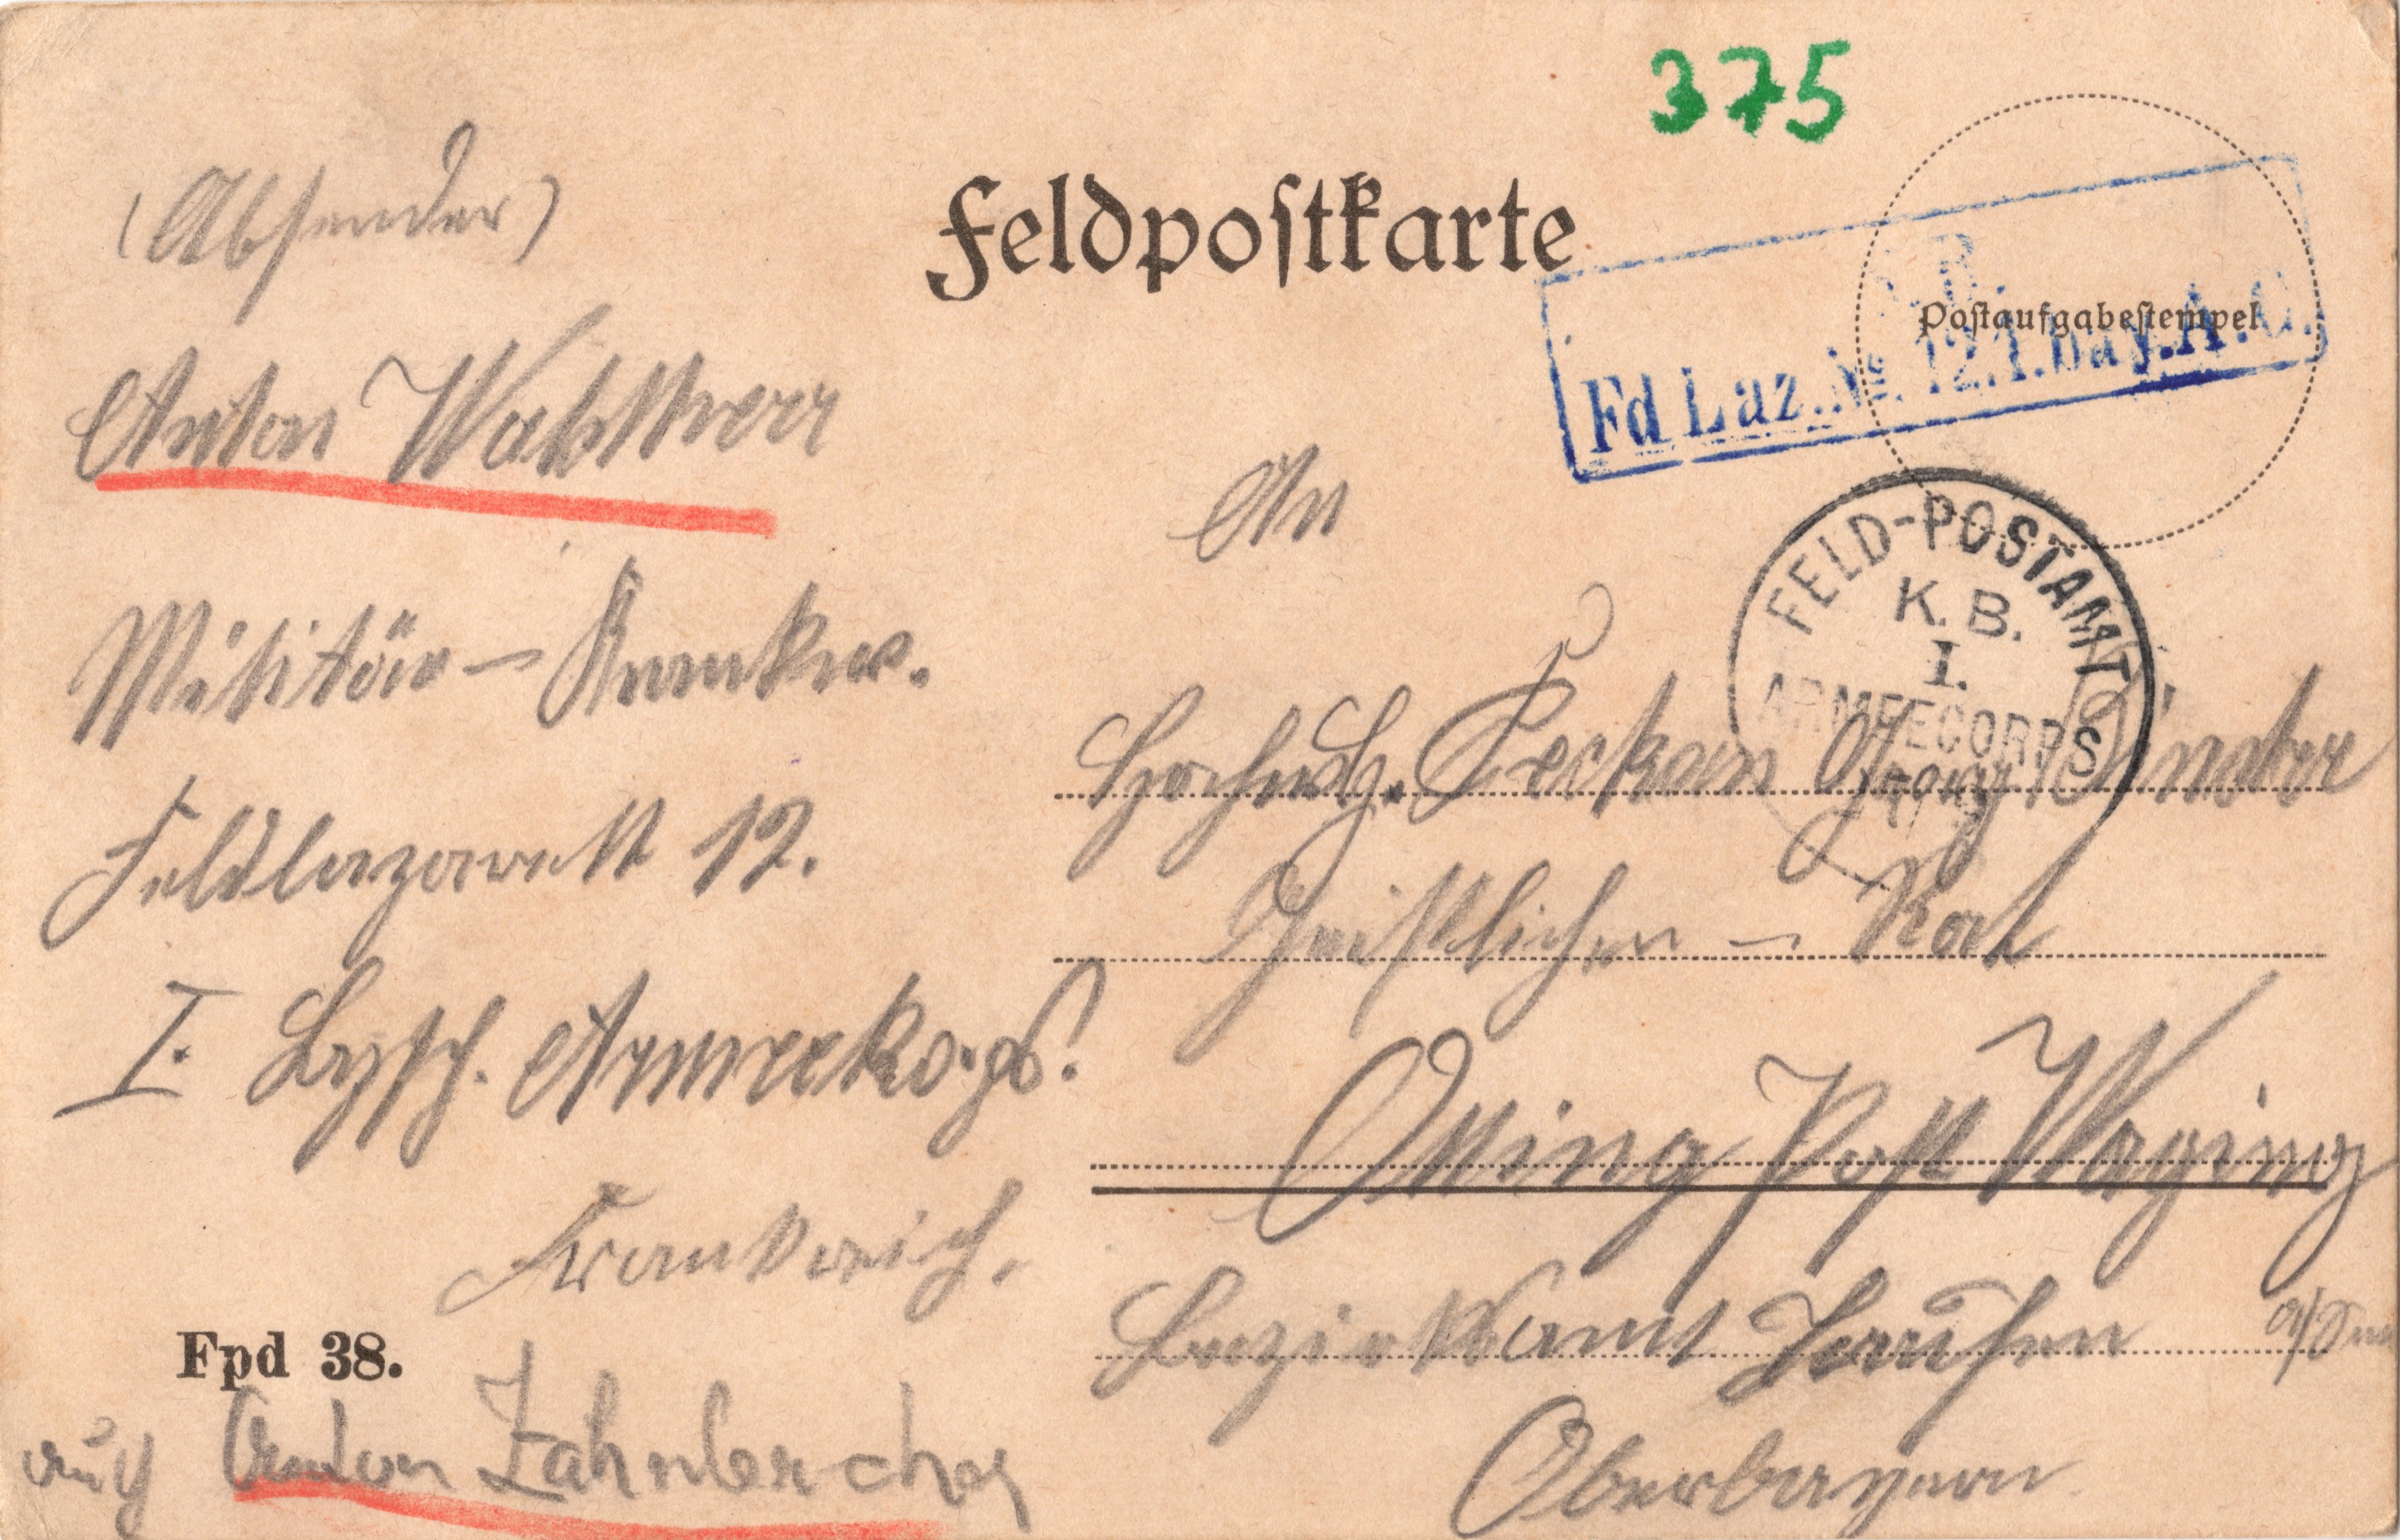 375
Feldpostkarte
Postaufgabestempel
S.B.
Fd Laz. № 12. I. bay. A. C.
FELD-POSTAMT
K. B.
I.
ARMEECORPS
(Absender)
Anton
Militär-Krankw.
Feldlazarett 12.
I. baysch. Armeekorps.
Frankreich.
Fpd 38.
auch Anton
An
Hochwh. Dekan Georg Linder
Geistlichen - Rat
Otting Post Waging
Bezirksamt Laufen
Oberbayern